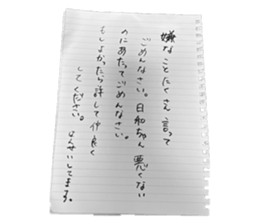 嫌なことたくさん言って
ごめんなさい。日和ちゃん悪くない
のにあたってごめんなさい。
もしよかったら許して仲良く
してください。
はんせいしてます。